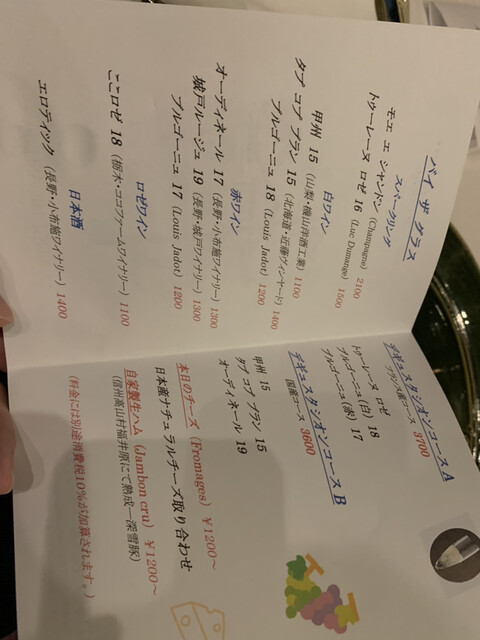 バイ ザ グラス
スパークリング
モエ エ シャンドン (Champagne) 2100
トゥーレーヌ ロゼ 16 (Luc Dumange) 1500
白ワイン
甲州 15 (山梨・機山洋酒工業) 1100
タプ コプ ブラン 15 (北海道・近藤ヴィンヤード) 1400
ブルゴーニュ 18 (Louis Jadot) 1200
赤ワイン
オーディネール 17 (長野・小布施ワイナリー) 1300
城戸ルージュ 19 (長野・城戸ワイナリー) 1300
ブルゴーニュ 17 (Louis Jadot) 1200
ロゼワイン
ここロゼ 18 (栃木・ココファームワイナリー) 1100
日本酒
エロティック (長野・小布施ワイナリー) 1400
デギュスタシオンコース A
フランス産コース 3700
トゥーレーヌ ロゼ
ブルゴーニュ(白) 18
ブルゴーニュ(赤) 17
デギュスタシオンコース B
国産コース 3600
甲州 15
タプ コプ ブラン 15
オーディネール 19
本日のチーズ (Fromages) ¥1200～
日本産ナチュラルチーズ取り合わせ
自家製生ハム (Jambon cru) ¥1200～
(信州高山村福井原にて熟成―深雪豚)
(料金には別途消費税10%が加算されます。)